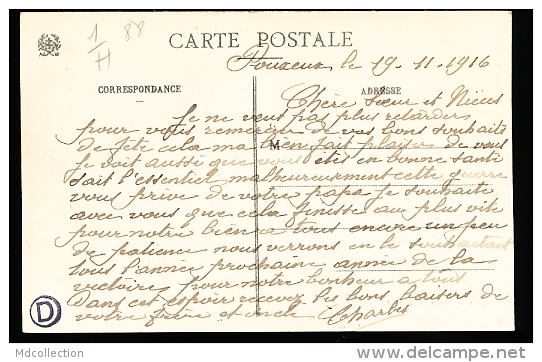 1/H 88
CARTE POSTALE
Pouxeux le 19-11-1916
CORRESPONDANCE
ADRESSE
Chère sœur et Nièces
Je ne veux pas plus retarder
pour vous remercier de vos bons souhaits
de fête cela ma bien fait plaisir de vous
M
je voit aussi que vous étés en bonne santé
sait l'essentiel malheureusement cette guerre
vous prive de votre papa je souhaite
avec vous que cela finisse au plus vite
pour notre bien a tous encore un peu
de patience nous verrons en le souhaitant
tous l'année prochaine année de la
victoire pour notre bonheur a tous
Dans cet espoir recevez les bons baisers de
votre frère et oncle Charles
D
Mdcollection
delcampe.net